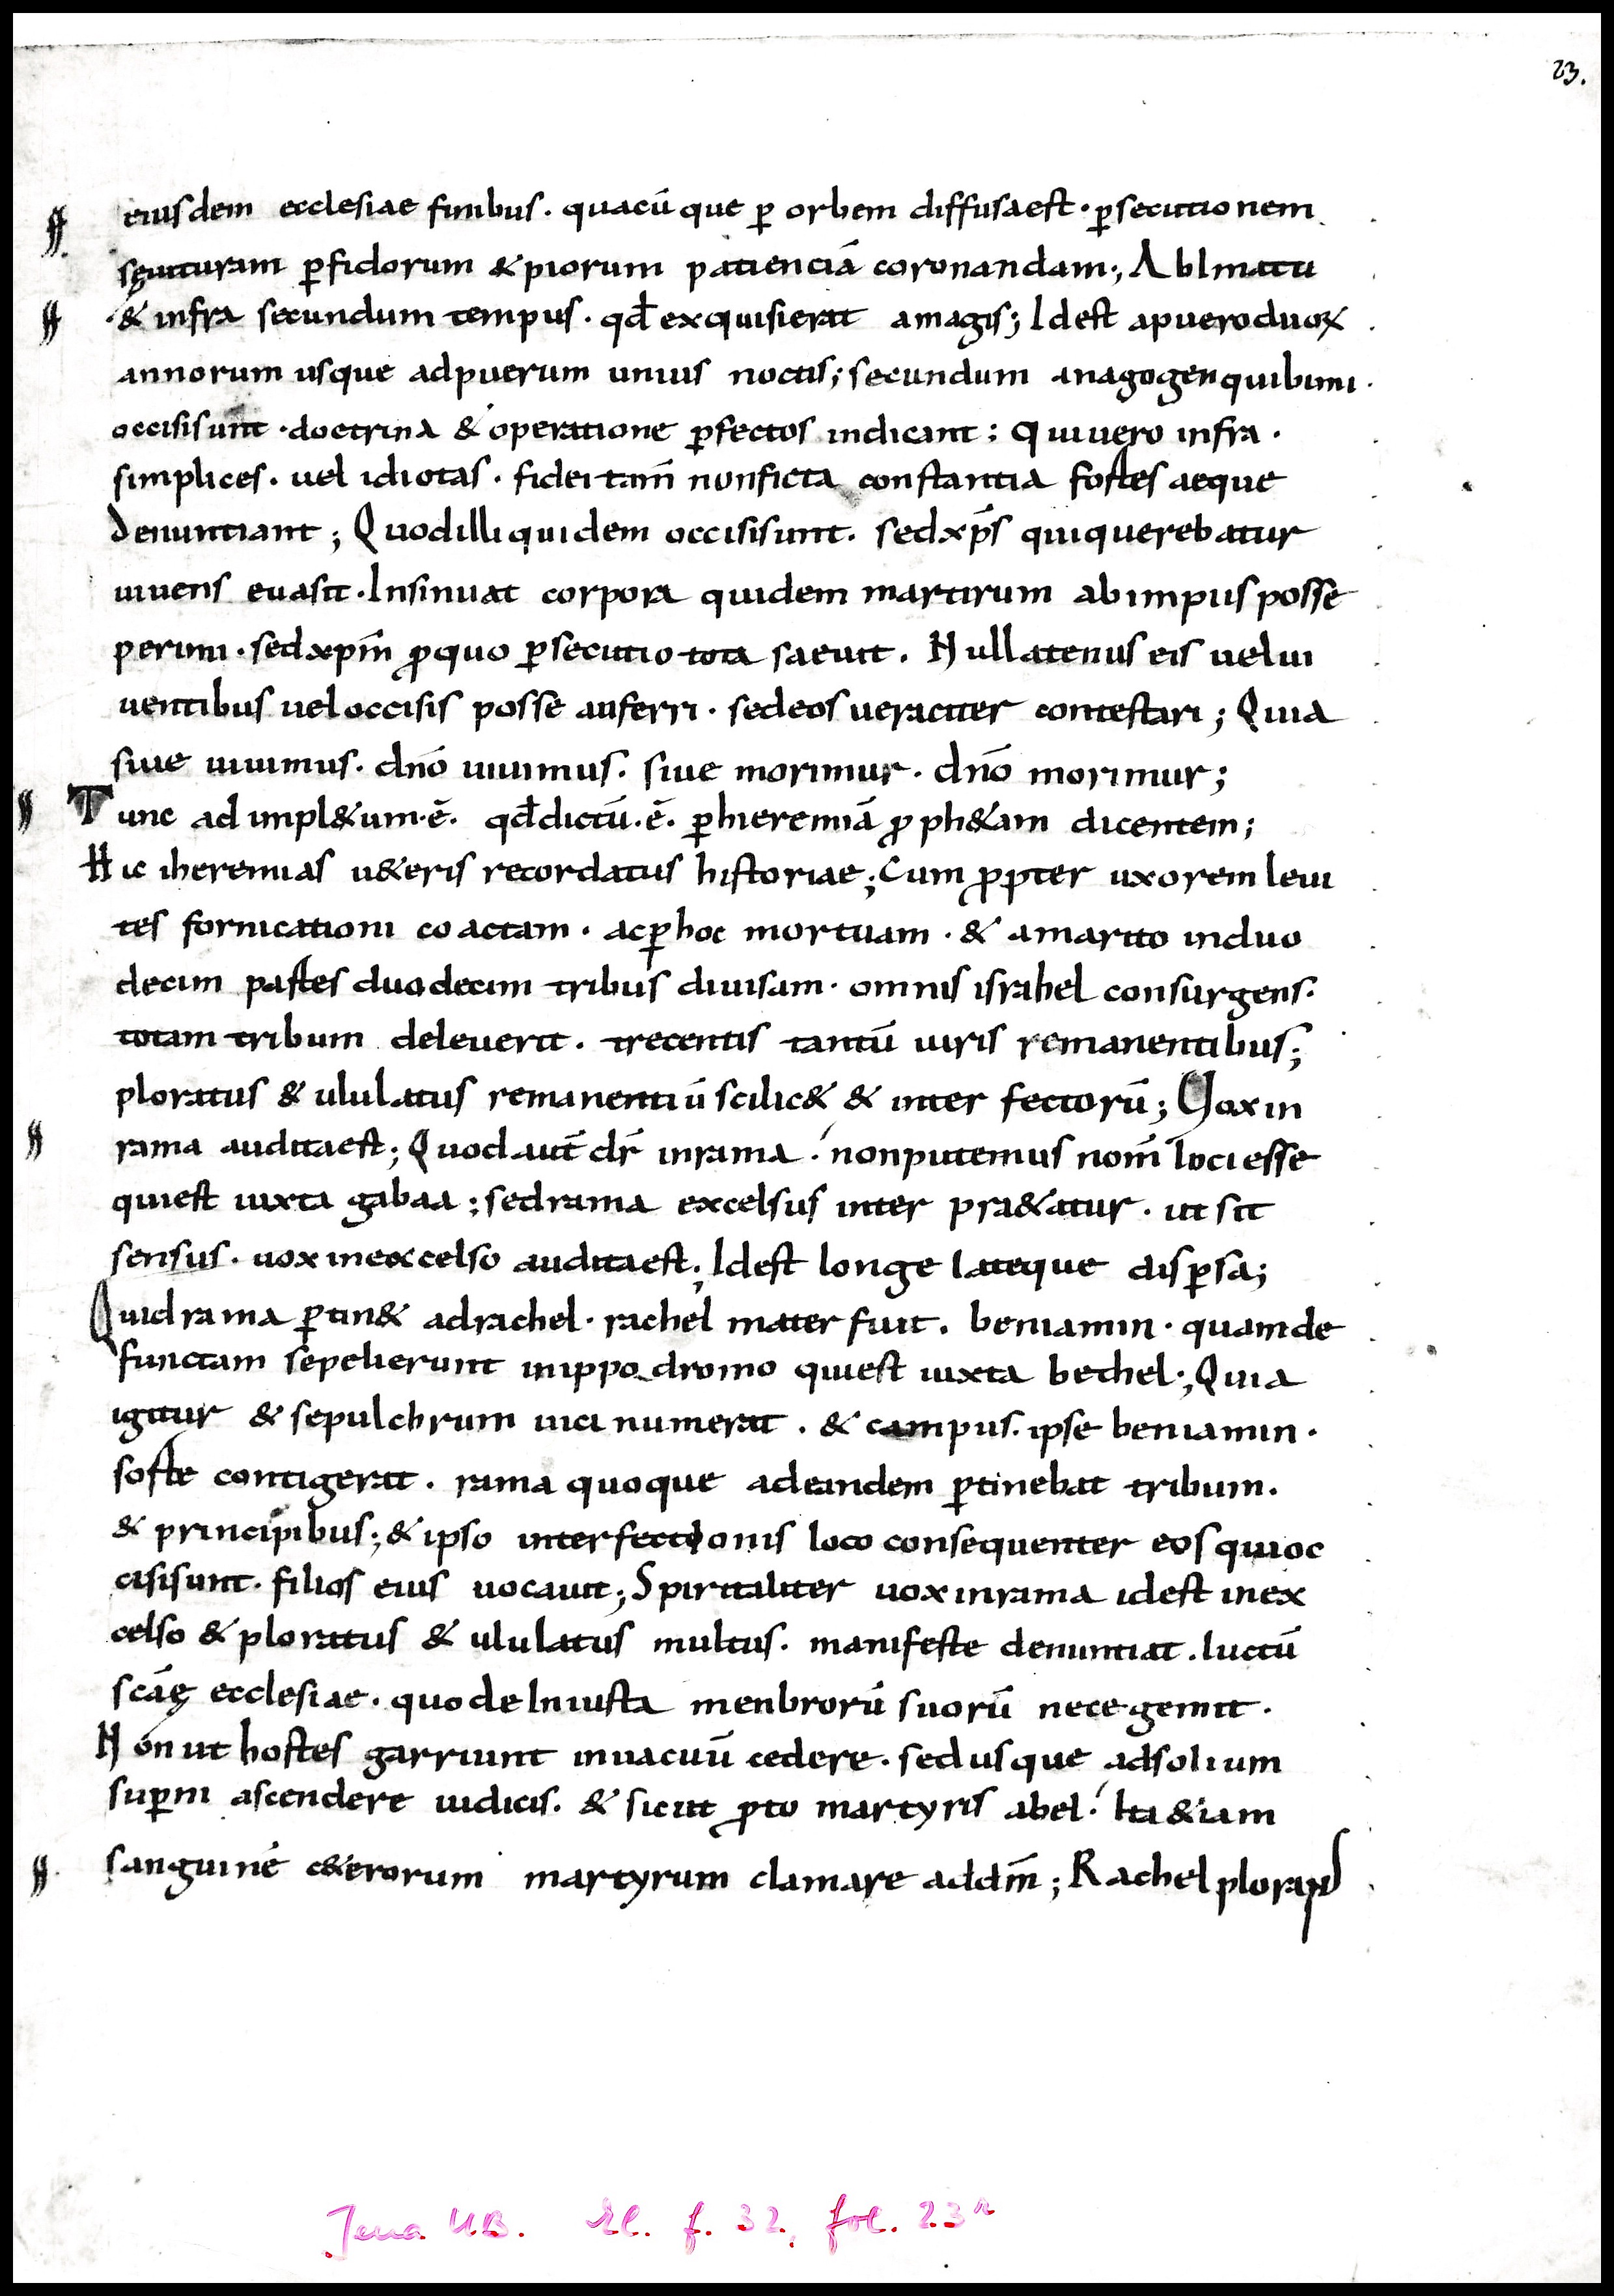 23.
eiusdem ecclesiae finibus. quacū que ꝑ orbem diffusaest. ꝑsecutionem
sęuituram ꝑfidorum & piorum patienciā coronandam; A bimatu
& infra secundum tempus. qđ exquisierat amagis; Idest apueroduoꝝ
annorum usque adpuerum unius noctis; secundum anagogen quibimi.
occisisunt. doctrina & operatione ꝑfectos indicant; Quiuero infra.
simplices. uel idiotas. fidei tam̄ nonficta constantia fortes aeque
denuntiant; Quodilli quidem occisisunt. sedxp̄s quiquerebatur
uiuens euasit. Insinuat corpora quidem martirum abimpiis posse
perimi. sedxpm̄ ꝓquo ꝑsecutio tota saeuit. Nullatenus eis uelui
uentibus ueloccisis posse auferri. sedeos ueraciter contestari; Quia
siue uiuimus. dn̄o uiuimus. siue morimur. dn̄o morimur;
Tunc adimpl&um.ē. qđdictū.ē. ꝑhieremiā ꝓph&am dicentem;
Hic iheremias u&eris recordatus historiae; Cum ꝓpter uxorem leui
tes fornicationi coactam. acꝑhoc mortuam. & amarito induo
decim partes duodecim tribus diuisam. omnis israhel consurgens.
totam tribum deleuerit. trecentis tantū uiris remanentibus;
ploratus & ululatus remanentiū scilic& & inter fectorū; Uox in
rama auditaest; Quod aut̄ dr̄ inrama. nonputemus nom̄ lociesse
quiest iuxta gabaa; sedrama excelsus inter pra&atur. ut sit
sensus. uox inexcelso auditaest; Idest longe lateque disꝑsa;
Quidrama ꝑtin& adrachel. rachel mater fuit. beniamin. quamde
functam sepelierunt inippodromo quiest iuxta bethel; Quia
igitur & sepulchrum uicinumerat. & campus. ipse beniamin.
sorte contigerat. rama quoque adeandem ꝑtinebat tribum.
& principibus; & ipso interfectionis loco consequenter eos quioc
cisisunt. filios eius uocauit; Spiritaliter uox inrama idest inex
celso & ploratus & ululatus multus. manifeste denuntiat. luctū
scāę ecclesiae. quo deIniusta menbrorū suorū nece gemit.
Non ut hostes garriunt inuacuū cedere. sed usque adsolium
suꝑni ascendere iudicis. & sicut ꝓto martyris abel. Ita&iam
sanguine c&erorum martyrum clamare addm̄; Rachel plorans
Jena UB. El. f. 32, fol. 23r